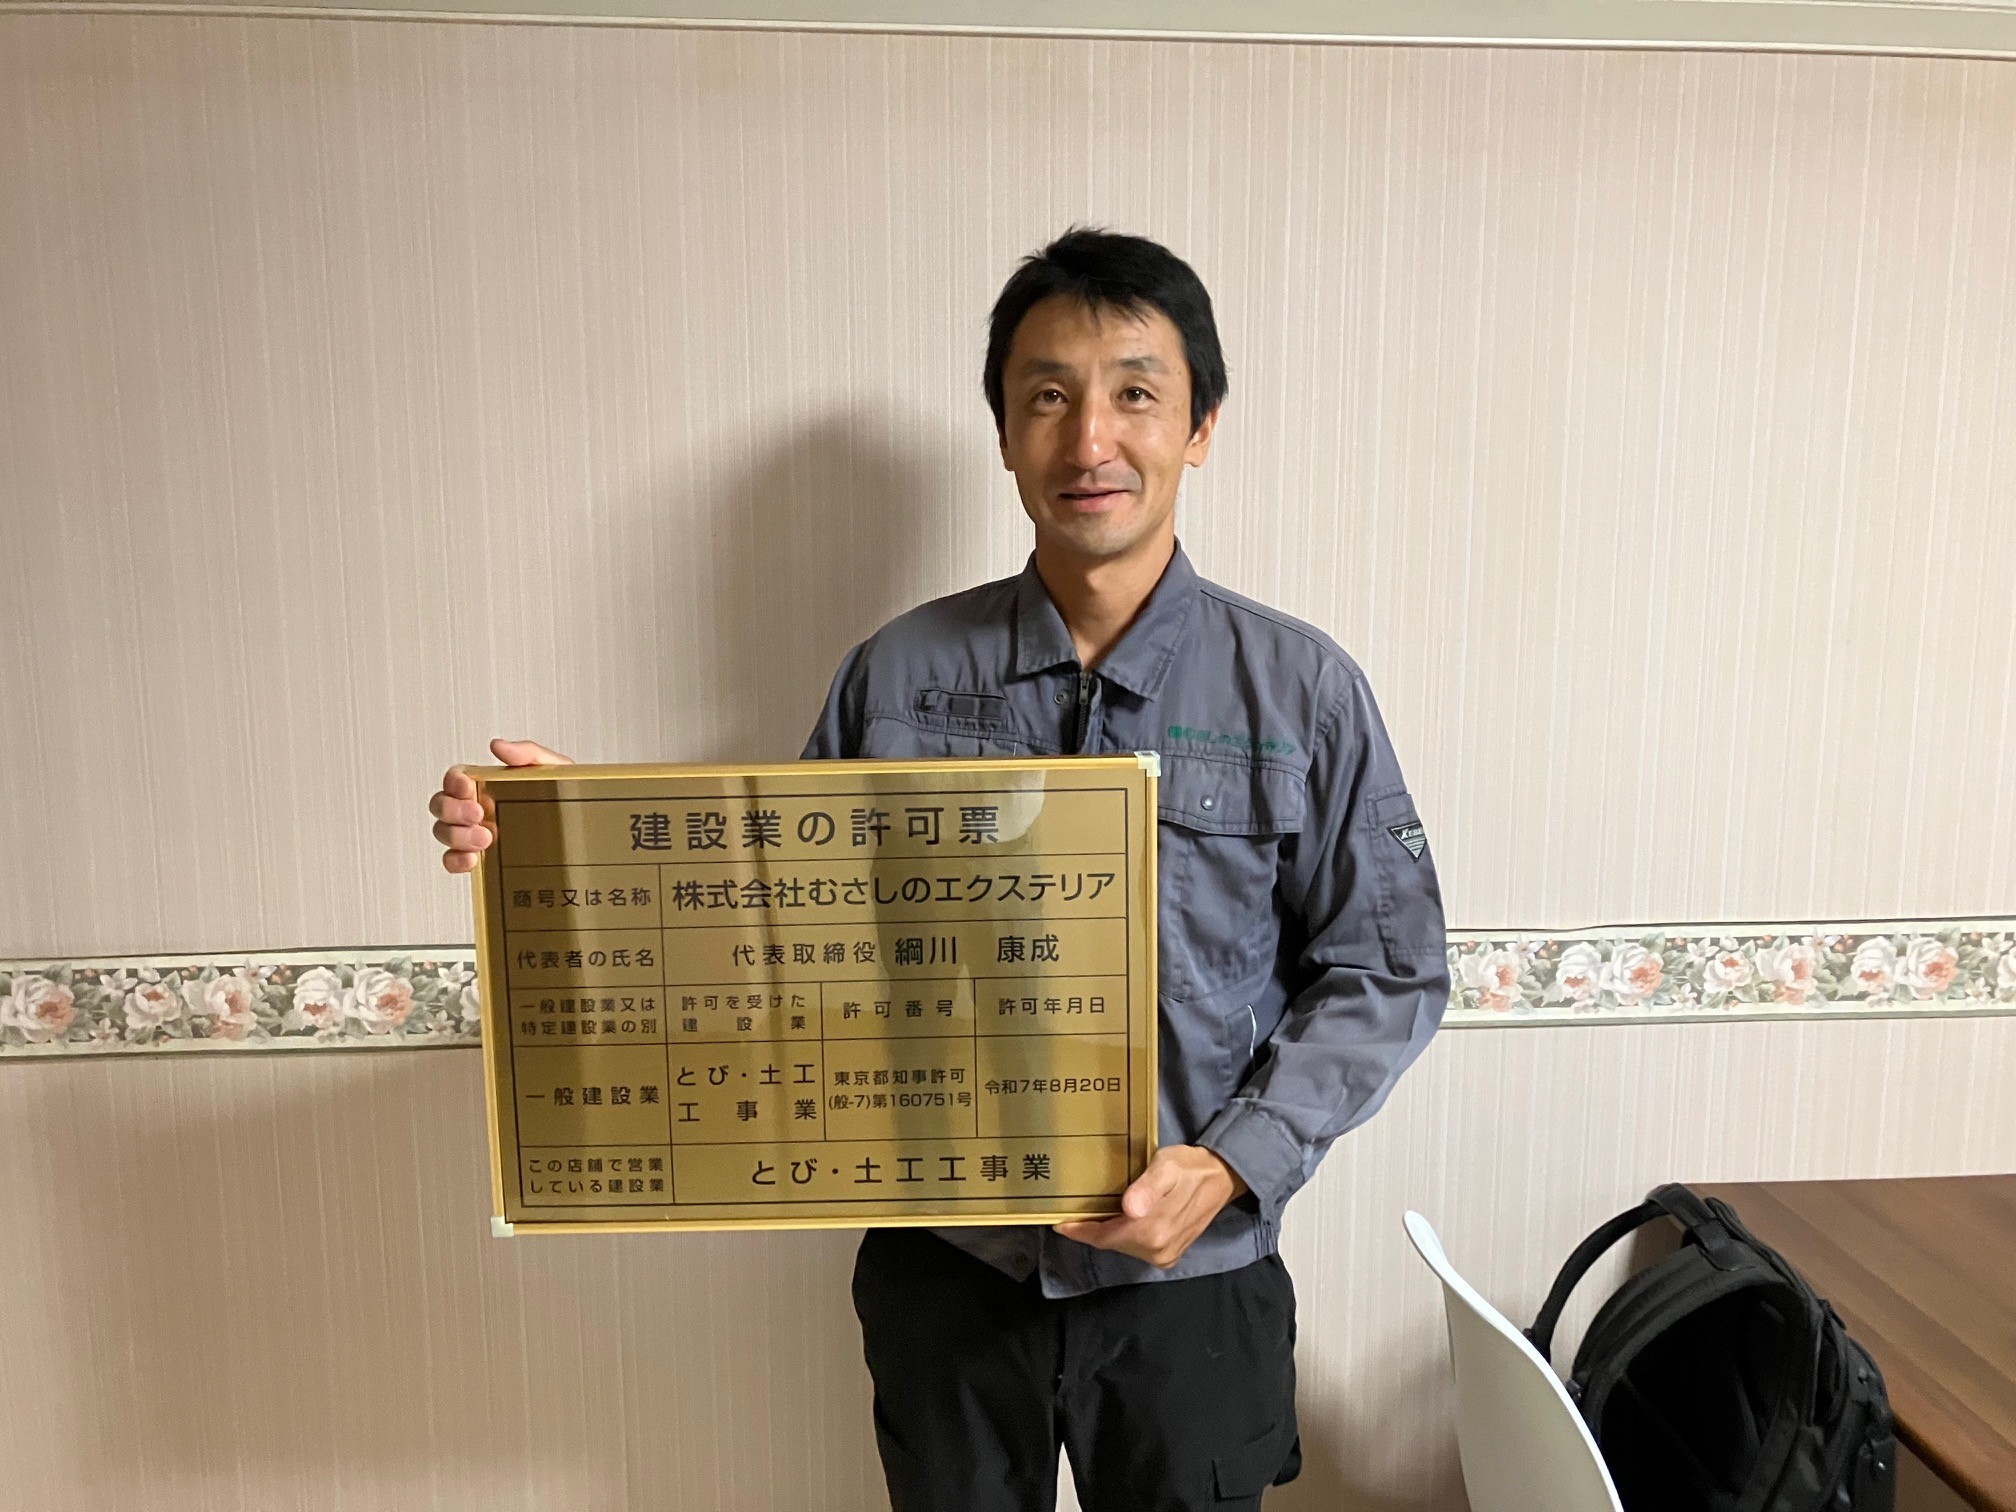 建設業の許可票
商号又は名称 株式会社むさしのエクステリア
代表者の氏名 代表取締役 綱川 康成
一般建設業又は特定建設業の別 許可を受けた建設業 許可番号 許可年月日
一般建設業 とび・土工工事業 東京都知事許可(般-7)第160751号 令和7年8月20日
この店舗で営業している建設業 とび・土工工事業
㈱むさしのエクステリア